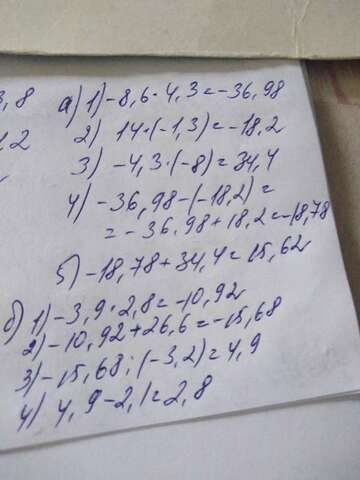 3,8
а) 1) -8,6·4,3=-36,98
1,2
2) 14·(-1,3)=-18,2
3) -4,3·(-8)=34,4
4) -36,98-(-18,2)=
=-36.98+18,2=-18,78
5) -18,78+34,4=15,62
б) 1) -3,9·2,8=-10,92
2) -10,92+26,6=-15,68
3) -15,68:(-3,2)=4,9
4) 4,9-2,1=2,8